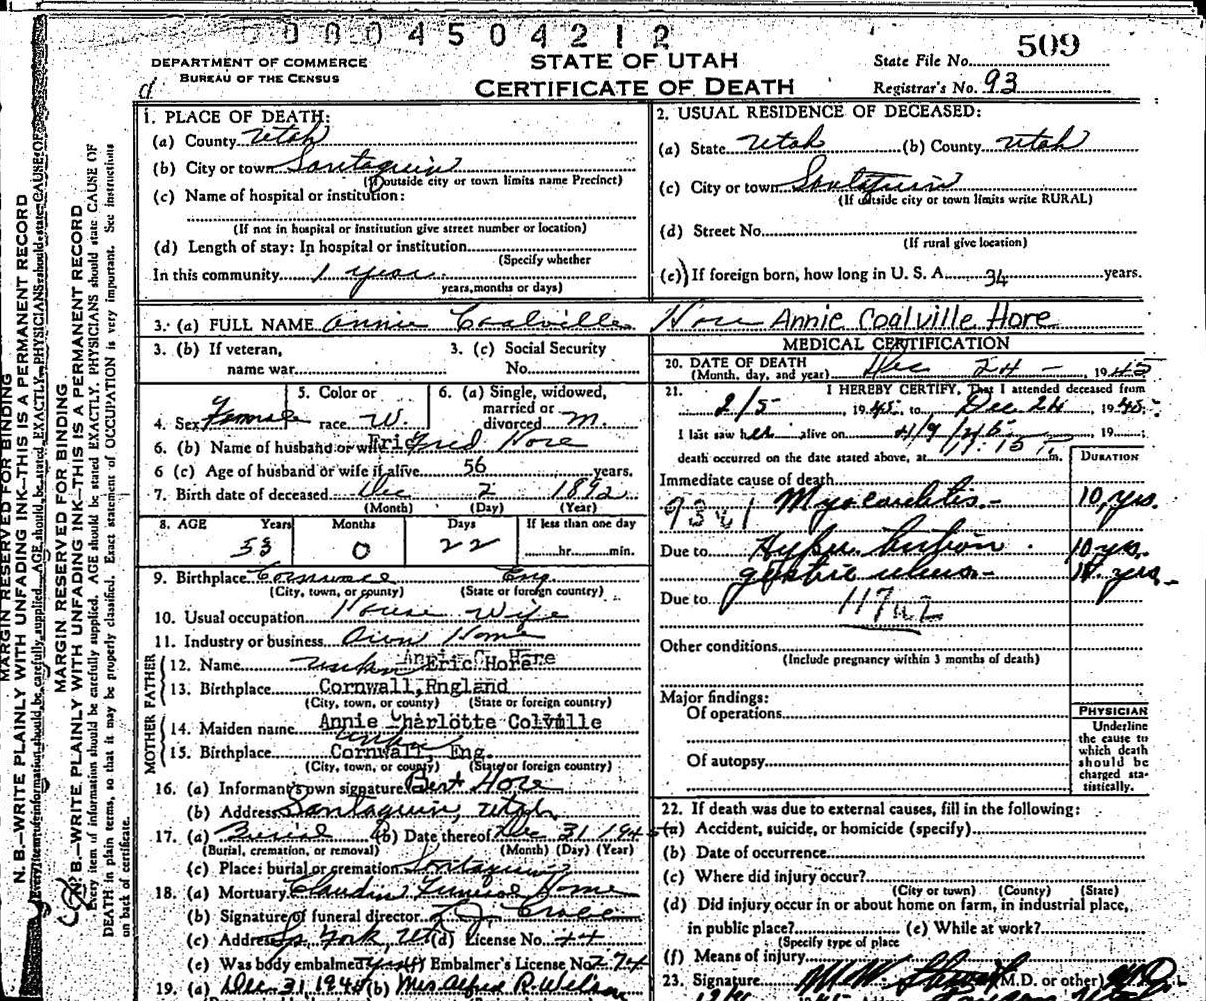 0 0 0 4 5 0 4 2 1 2
STATE OF UTAH
CERTIFICATE OF DEATH
DEPARTMENT OF COMMERCE
BUREAU OF THE CENSUS
State File No. 509
Registrar's No. 93
d
1. PLACE OF DEATH:
(a) County Utah
(b) City or town Santaquin
(If outside city or town limits name Precinct)
(c) Name of hospital or institution:
(If not in hospital or institution give street number or location)
(d) Length of stay: In hospital or institution
(Specify whether
In this community 1 year
years, months or days)
2. USUAL RESIDENCE OF DECEASED:
(a) State Utah (b) County Utah
(c) City or town Santaquin
(If outside city or town limits write RURAL)
(d) Street No.
(If rural give location)
(e) If foreign born, how long in U. S. A. 34 years.
3. (a) FULL NAME Annie Coalville Hore Annie Coalville Hore
3. (b) If veteran,
name war
3. (c) Social Security
No.
4. Sex Female
5. Color or
race W.
6. (a) Single, widowed,
married or
divorced M.
6. (b) Name of husband or wife Eric Fred Hore
6 (c) Age of husband or wife if alive 56 years.
7. Birth date of deceased Dec 2 1892
(Month) (Day) (Year)
8. AGE Years Months Days If less than one day
53 0 22 hr. min.
9. Birthplace Cornwall Eng.
(City, town, or county) (State or foreign country)
10. Usual occupation House Wife
11. Industry or business Own Home
FATHER
12. Name Eric Hore
13. Birthplace Cornwall, England
(City, town, or county) (State or foreign country)
MOTHER
14. Maiden name Annie Charlotte Colville
15. Birthplace Cornwall, Eng.
(City, town, or county) (State or foreign country)
16. (a) Informant's own signature Bert Hore
(b) Address Santaquin, Utah
17. (a) Burial (b) Date thereof Dec 31 1945
(Burial, cremation, or removal) (Month) (Day) (Year)
(c) Place: burial or cremation Santaquin
18. (a) Mortuary Claudin Funeral Home
(b) Signature of funeral director
(c) Address Sp. Fork, Ut (d) License No. 44
(e) Was body embalmed yes (f) Embalmer's License No. 274
19. (a) Dec. 31 1945 (b) Mrs Alfred R. Wilson
MEDICAL CERTIFICATION
20. DATE OF DEATH
(Month, day, and year) Dec 24 - 1945
21. I HEREBY CERTIFY, That I attended deceased from
2/5 1945, to Dec 24, 1945
I last saw her alive on 19
death occurred on the date stated above, at m.
DURATION
Immediate cause of death
Myocarditis - 10, yrs.
Due to Hypertention. 10 yrs.
gastric ulcers - yrs
Due to
Other conditions
(Include pregnancy within 3 months of death)
Major findings:
Of operations
Of autopsy
PHYSICIAN
Underline
the cause to
which death
should be
charged sta-
tistically.
22. If death was due to external causes, fill in the following:
(a) Accident, suicide, or homicide (specify)
(b) Date of occurrence
(c) Where did injury occur?
(City or town) (County) (State)
(d) Did injury occur in or about home on farm, in industrial place,
in public place? (e) While at work?
(Specify type of place
(f) Means of injury
23. Signature (M.D. or other) M.D.
MARGIN RESERVED FOR BINDING
N. B.—WRITE PLAINLY WITH UNFADING INK—THIS IS A PERMANENT RECORD
MARGIN RESERVED FOR BINDING
N. B.—WRITE PLAINLY WITH UNFADING INK—THIS IS A PERMANENT RECORD
Every item of information should be carefully supplied. AGE should be stated EXACTLY. PHYSICIANS should state CAUSE OF
DEATH in plain terms, so that it may be properly classified. Exact statement of OCCUPATION is very important. See instructions
on back of certificate.